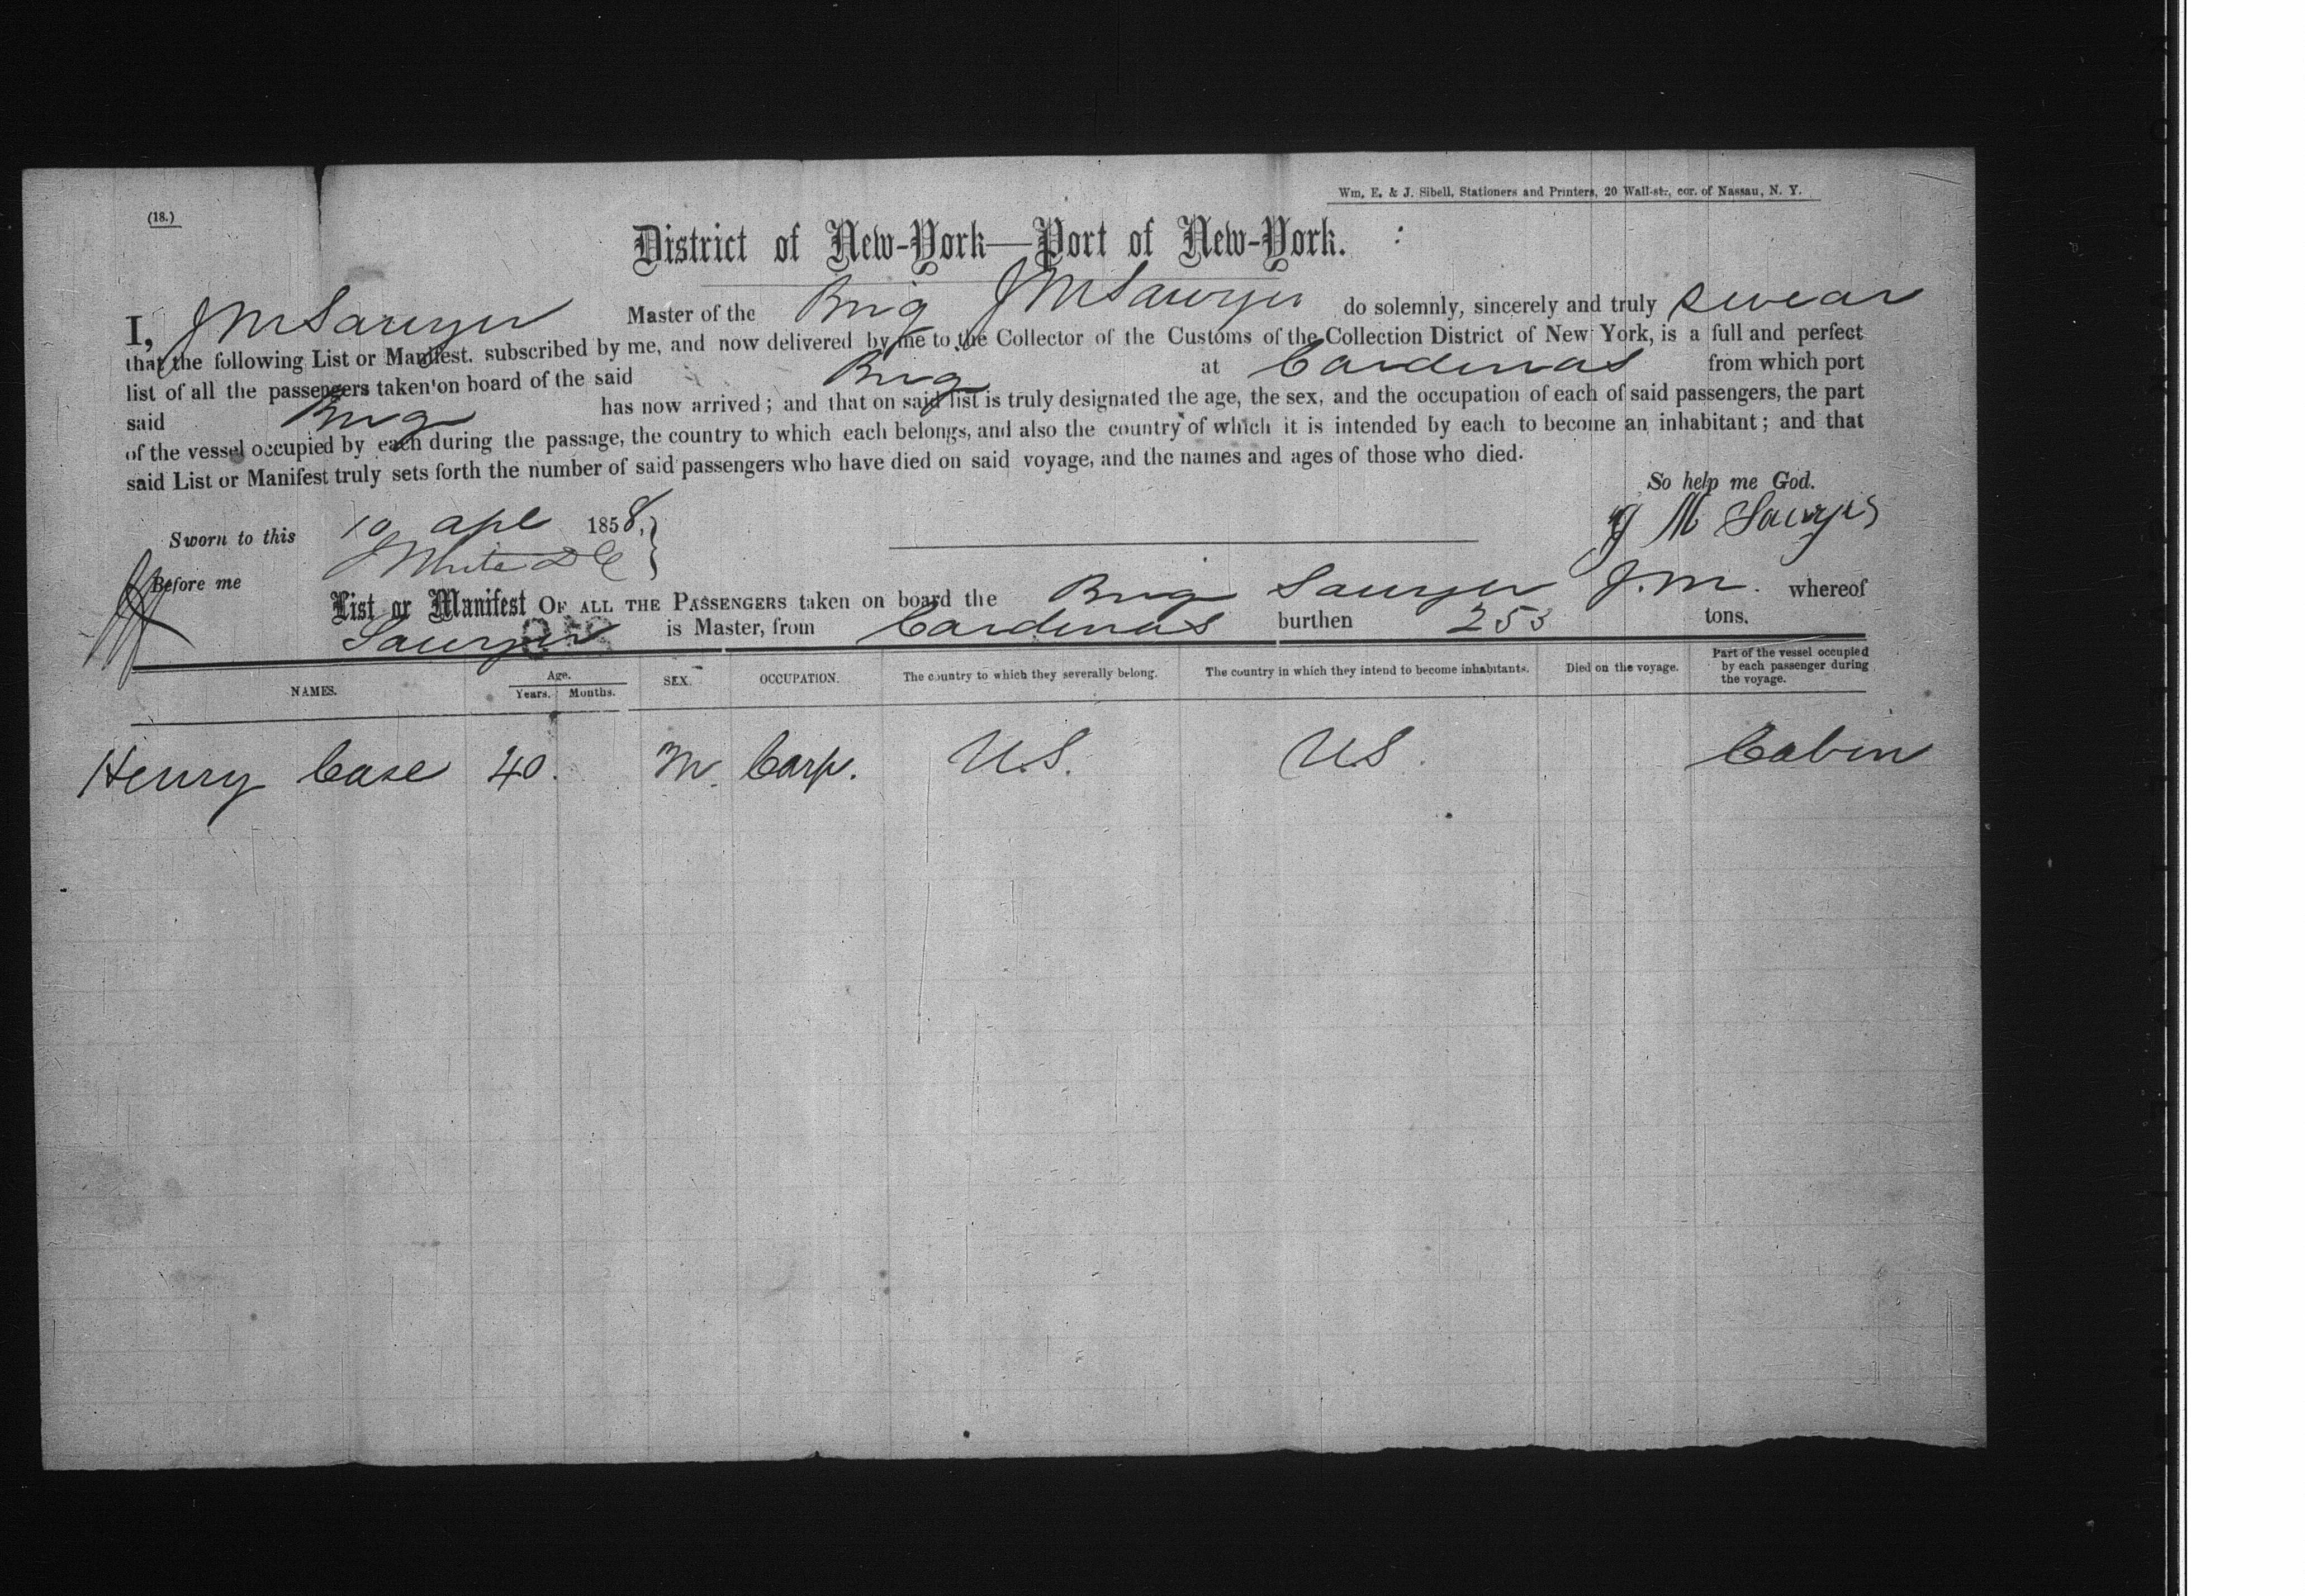 Wm. E. & J. Sibell, Stationers and Printers, 20 Wall-st., cor. of Nassau, N. Y.
(18.)
District of New-York—Port of New-York.
I, J M Sawyer Master of the Brig J M Sawyer do solemnly, sincerely and truly swear
that the following List or Manifest. subscribed by me, and now delivered by me to the Collector of the Customs of the Collection District of New York, is a full and perfect
list of all the passengers taken on board of the said Brig at Cardenas from which port
said Brig has now arrived; and that on said list is truly designated the age, the sex, and the occupation of each of said passengers, the part
of the vessel occupied by each during the passage, the country to which each belongs, and also the country of which it is intended by each to become an inhabitant; and that
said List or Manifest truly sets forth the number of said passengers who have died on said voyage, and the names and ages of those who died.
So help me God.
Sworn to this 10 apl 1858, J M Sawyer
Before me J White D C
List or Manifest OF ALL THE PASSENGERS taken on board the Brig Sawyer J. M. whereof
Sawyer is Master, from Cardenas burthen 253 tons.
NAMES. Age. Years. Months. SEX. OCCUPATION. The country to which they severally belong. The country in which they intend to become inhabitants. Died on the voyage. Part of the vessel occupied by each passenger during the voyage.
Henry Case 40. M. Carp. U.S. US. Cabin